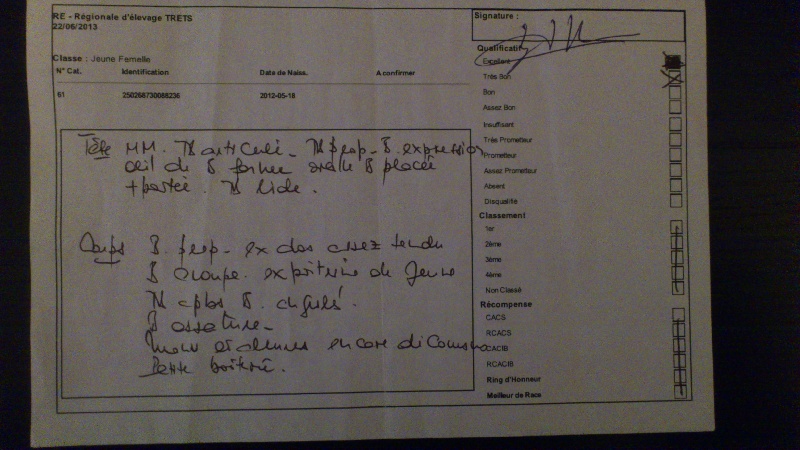 RE - Régionale d'élevage TRETS
22/06/2013
Classe : Jeune Femelle
N° Cat. Identification Date de Naiss. A confirmer
61 250268730088236 2012-05-18
Tête MM. TB articulé - TB prop - B. expression
œil de B forme oreille B placée
+ portée. TB
Corps B. prop - ex dos assez tendu
B croupe. ex poitrine de Jeune
TB aplbs B. angulé.
B ossature -
encore
Petite
Signature :
Qualificatif
Excellent
Très Bon
Bon
Assez Bon
Insuffisant
Très Prometteur
Prometteur
Assez Prometteur
Absent
Disqualifié
Classement
1er
2ème
3ème
4ème
Non Classé
Récompense
CACS
RCACS
CACIB
RCACIB
Ring d'Honneur
Meilleur de Race